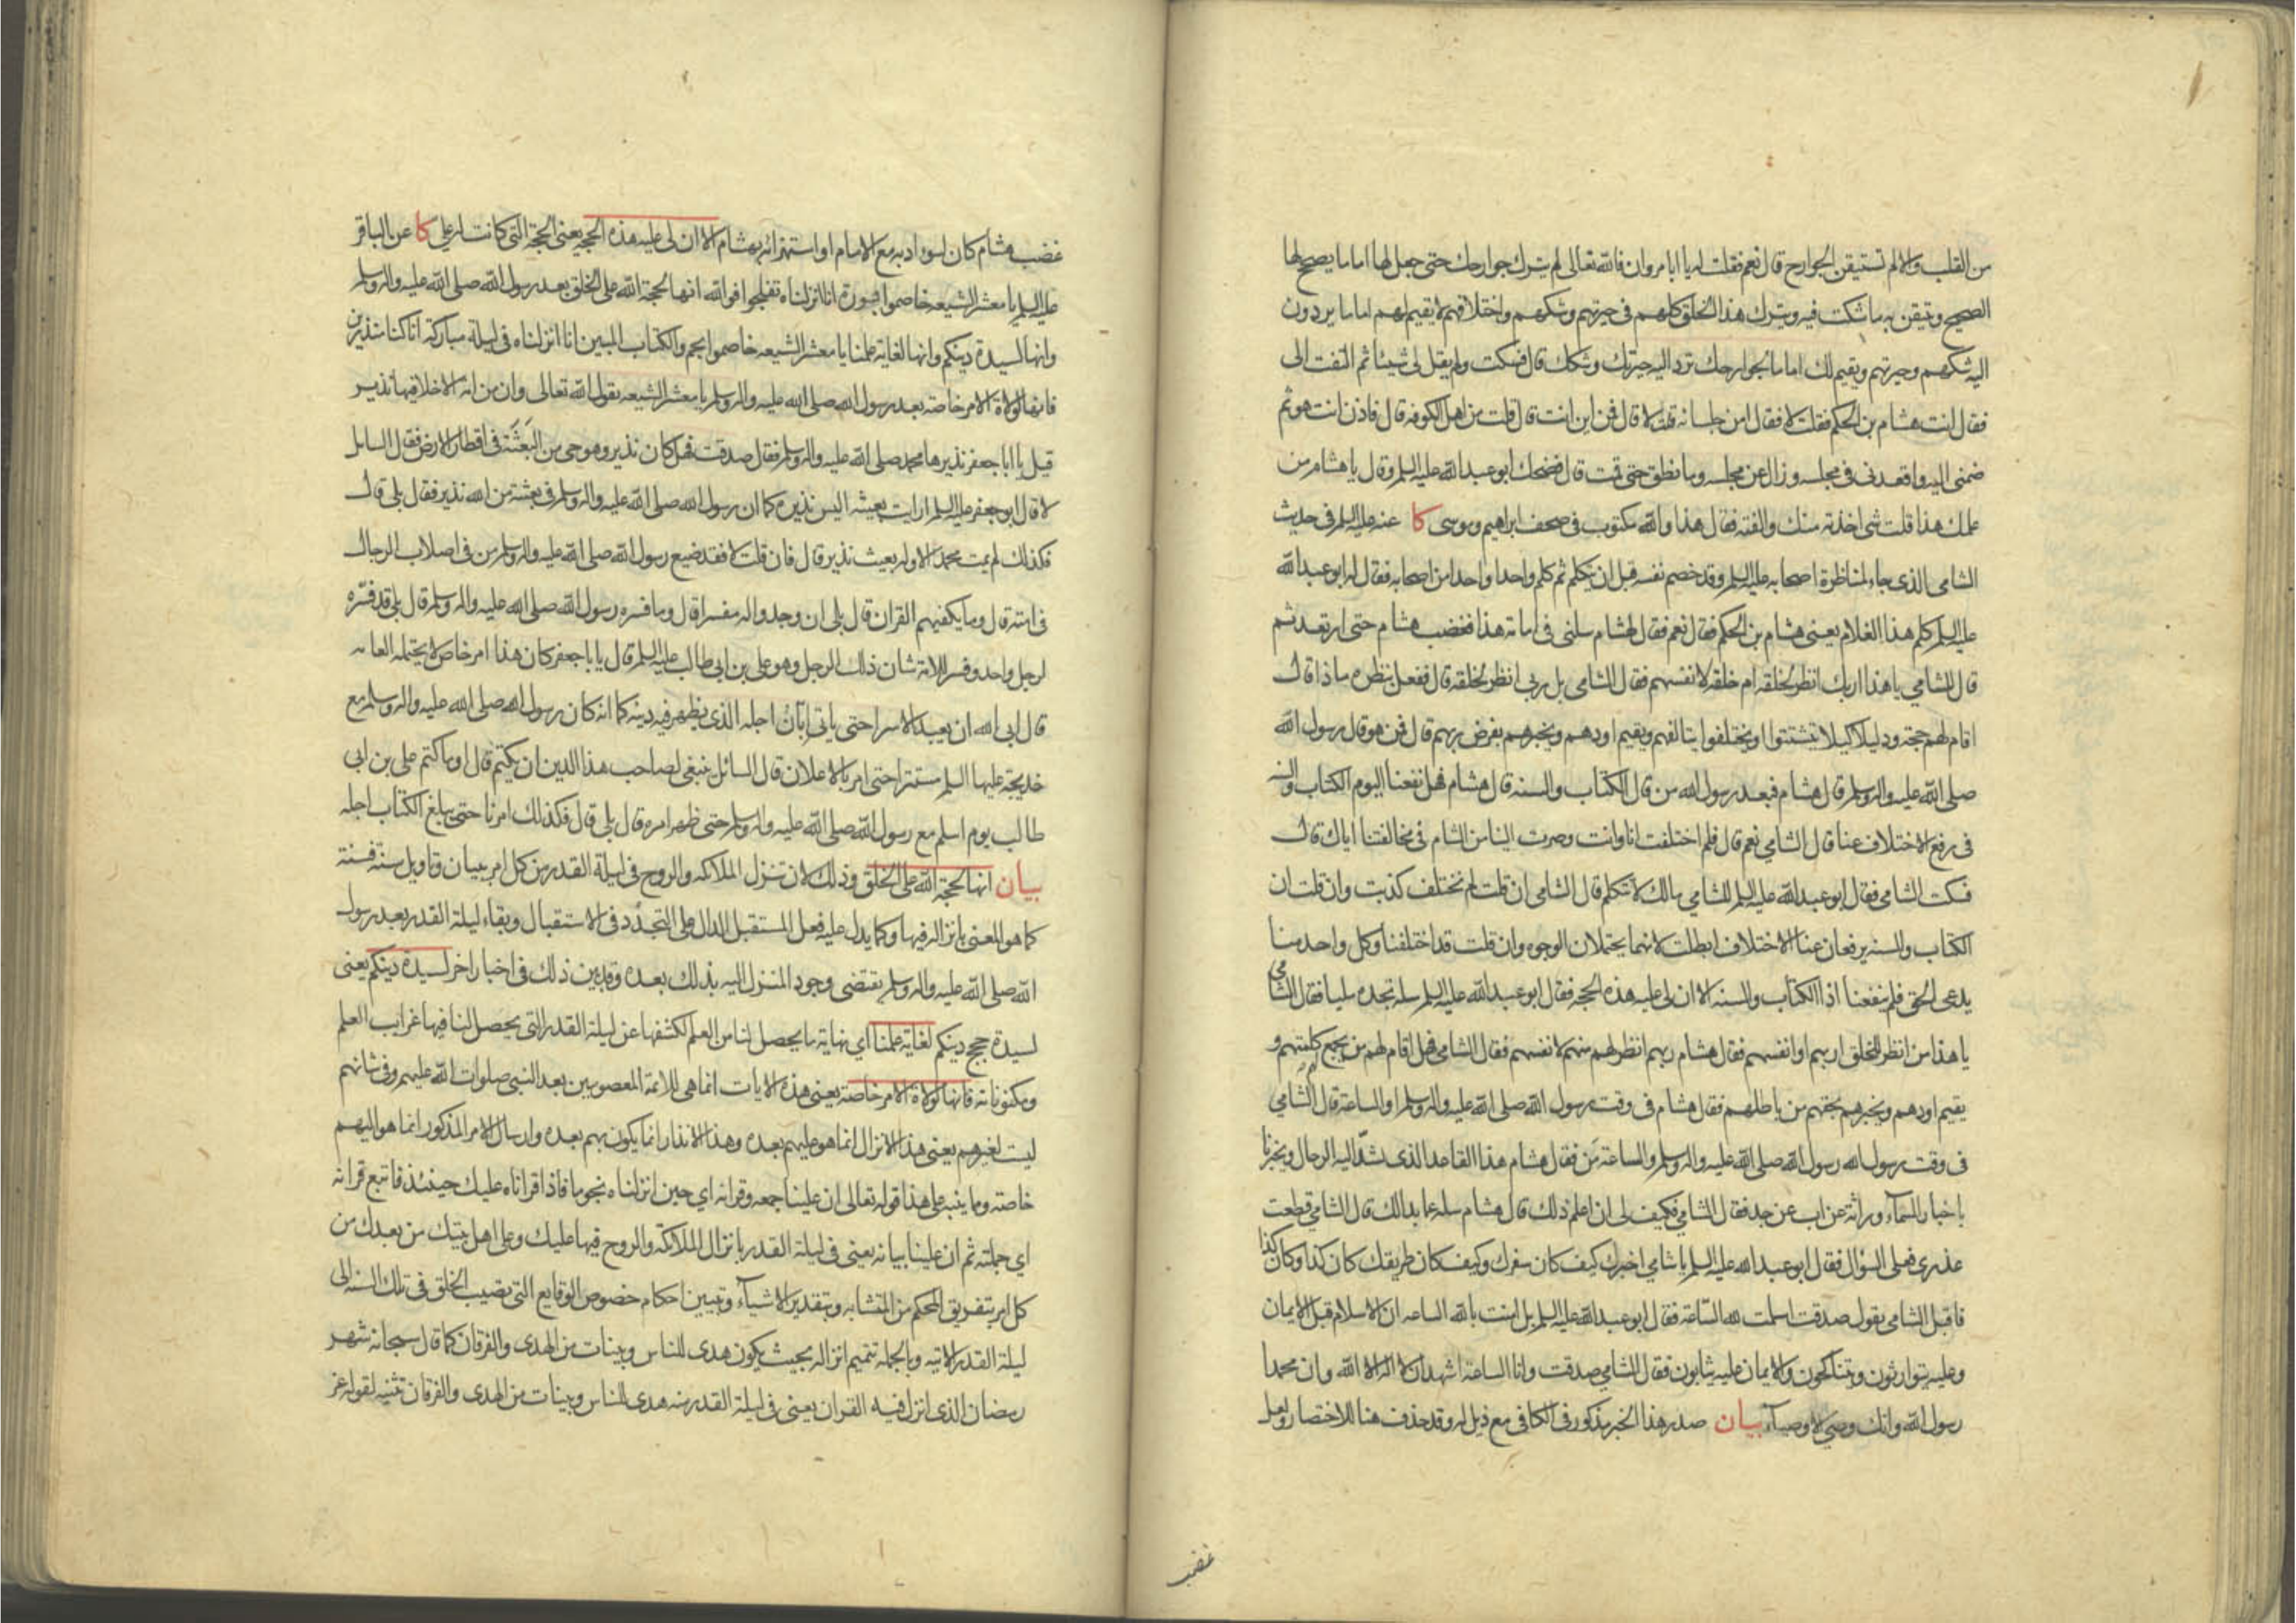 من القلب والا لم تستيقن الجوارح قال نعم فقلت له يا ابا مروان فالله تعالى لم يترك جوارحك حتى جعل لها اماما يصحح لها
الصحيح وتيقن به ما شكت فيه ويترك هذا الخلق كلهم في حيرتهم وشكهم واختلافهم لا يقيم لهم اماما يردون
اليه شكهم وحيرتهم ويقيم لك اماما لجوارحك ترد اليه حيرتك وشكك قال فسكت ولم يقل لي شيئا ثم التفت الى
فقال انت هشام بن الحكم فقلت لا فقال امن جلسائه قلت لا قال فمن اين انت قال قلت من اهل الكوفه قال فاذن انت هو ثم
ضمني اليه واقعدني في مجلسه وزال عن مجلسه وما نطق حتى قمت قال فضحك ابو عبد الله عليه السلم وقال يا هشام من
علمك هذا قلت شئ اخذته منك والفته فقال هذا والله مكتوب في صحف ابراهيم وموسى كا عنه عليه السلم في حديث
الشامي الذي جاء لمناظرة اصحابه عليه السلم وقد خصم نفسه قبل ان يتكلم ثم كلم واحدا واحدا من اصحابه فقال له ابو عبد الله
عليه السلم كلم هذا الغلام يعني هشام بن الحكم فقال نعم فقال لهشام سلني في امامة هذا فغضب هشام حتى ارتعد ثم
قال للشامي يا هذا اربك انظر لخلقه ام خلقه لانفسهم فقال الشامي بل ربي انظر لخلقه قال ففعل بنظره ما ذا قال
اقام لهم حجة ودليلا كيلا يتشتتوا او يختلفوا يتالفهم ويقيم اودهم ويخبرهم بفرض ربهم قال فمن هو قال رسول الله
صلى الله عليه واله وسلم قال هشام فبعد رسول الله من قال الكتاب والسنه قال هشام فهل نفعنا اليوم الكتاب والسنه
في رفع الاختلاف عنا قال الشامي نعم قال فلم اختلفت انا وانت وصرت الينا من الشام في مخالفتنا اياك قال
فسكت الشامي فقال ابو عبد الله عليه السلم للشامي مالك لا تتكلم قال الشامي ان قلت لم نختلف كذبت وان قلت ان
الكتاب والسنه يرفعان عنا الاختلاف ابطلت لانهما يحتملان الوجوه وان قلت قد اختلفنا وكل واحد منا
يدعي الحق فلم ينفعنا اذا الكتاب والسنه الا ان لي عليه هذه الحجه فقال ابو عبد الله عليه السلم سله تجده مليا فقال الشامي
يا هذا من انظر للخلق اربهم او انفسهم فقال هشام ربهم انظر لهم منهم لانفسهم فقال الشامي فهل اقام لهم من يجمع كلمتهم و
يقيم اودهم ويخبرهم بحقهم من باطلهم فقال هشام في وقت رسول الله صلى الله عليه واله وسلم او الساعة قال الشامي
في وقت رسول الله رسول الله صلى الله عليه واله وسلم والساعة من فقال هشام هذا القاعد الذي تشد اليه الرحال ويخبرنا
باخبار السماء وراثة عن اب عن جد فقال الشامي فكيف لي ان اعلم ذلك قال هشام سله عما بدا لك قال الشامي قطعت
عذري فعلي السؤال فقال ابو عبد الله عليه السلم يا شامي اخبرك كيف كان سفرك وكيف كان طريقك كان كذا وكان كذا
فاقبل الشامي يقول صدقت اسلمت لله الساعة فقال ابو عبد الله عليه السلم بل امنت بالله الساعه ان الاسلام قبل الايمان
وعليه يتوارثون ويتناكحون والايمان عليه يثابون فقال الشامي صدقت وانا الساعة اشهد ان لا اله الا الله وان محمدا
رسول الله وانك وصي الاوصياء بيان صدر هذا الخبر مذكور في الكافي مع ذيل له وقد حذف هنا للاختصار ولعل
غضب
غضب هشام كان لسوء ادبه مع الامام او استهزائه بهشام الا ان لي عليه هذه الحجه يعني الحجة التي كانت له علي كا عن الباقر
عليه السلم يا معشر الشيعه خاصموا بسورة انا انزلناه تفلجوا فوالله انها لحجة الله على الخلق بعد رسول الله صلى الله عليه واله وسلم
وانها لسيدة دينكم وانها لغاية علمنا يا معشر الشيعه خاصموا بحم والكتاب المبين انا انزلناه في ليلة مباركة انا كنا منذرين
فانها لولاة الامر خاصة بعد رسول الله صلى الله عليه واله وسلم يا معشر الشيعه يقول الله تعالى وان من امة الا خلا فيها نذير
قيل يا ابا جعفر نذيرها محمد صلى الله عليه واله وسلم فقال صدقت فهل كان نذير وهو حي من البعثة في اقطار الارض فقال السائل
لا قال ابو جعفر عليه السلم ارايت بعيثه اليس نذيره كما ان رسول الله صلى الله عليه واله وسلم في بعثته من الله نذير فقال بلى قال
فكذلك لم يمت محمد الا وله بعيث نذير قال فان قلت لا فقد ضيع رسول الله صلى الله عليه واله وسلم من في اصلاب الرجال
في امته قال وما يكفيهم القران قال بلى ان وجدوا له مفسرا قال وما فسره رسول الله صلى الله عليه واله وسلم قال بلى قد فسره
لرجل واحد وفسر للامة شان ذلك الرجل وهو علي بن ابي طالب عليه السلم قال يا با جعفر كان هذا امر خاص لا يحتمله العامه
قال ابى الله ان يعبد الا سرا حتى ياتي ابان اجله الذي يظهر فيه دينه كما انه كان رسول الله صلى الله عليه واله وسلم مع
خديجة عليها السلم مستترا حتى امر بالاعلان قال السائل ينبغي لصاحب هذا الدين ان يكتم قال اوما كتم علي بن ابي
طالب يوم اسلم مع رسول الله صلى الله عليه واله وسلم حتى ظهر امره قال بلى قال فكذلك امرنا حتى يبلغ الكتاب اجله
بيان انها لحجة الله على الخلق وذلك لان تنزل الملائكه والروح في ليلة القدر من كل امر ببيان وتاويل سنة فسنة
كما هو المعني بانزاله فيها وكما يدل عليه فعل المستقبل الدال على التجدد في الاستقبال وبقاء ليلة القدر بعد رسول
الله صلى الله عليه واله وسلم يقتضي وجود المنزل اليه بذلك بعده وقد بين ذلك في اخبار اخر لسيدة دينكم يعني
لسيدة حجج دينكم لغاية علمنا اي نهاية ما يحصل لنا من العلم لكشفها عن ليلة القدر التي يحصل لنا فيها غرايب العلم
ومكنوناته فانها لولاة الامر خاصة يعني هذه الايات انما هي للائمة المعصومين بعد النبي صلوات الله عليهم وفي شانهم
ليست لغيرهم يعني هذا الانزال انما هو عليهم بعده وهذا الانذار انما يكون بهم بعده وارسال الامر المذكور انما هو اليهم
خاصة ومما ينبه على هذا قوله تعالى ان علينا جمعه وقرانه اي حين انزلناه نجوما فاذا قراناه عليك حينئذ فاتبع قرانه
اي جملته ثم ان علينا بيانه يعني في ليلة القدر بانزال الملائكة والروح فيها عليك وعلى اهل بيتك من بعدك من
كل امر بتفريق المحكم من المتشابه وبتقدير الاشياء وتبيين احكام خصوص الوقايع التي تصيب الخلق في تلك السنه الى
ليلة القدر الاتيه وبالجمله تتميم انزاله بحيث يكون هدى للناس وبينات من الهدى والفرقان كما قال سبحانه شهر
رمضان الذي انزل فيه القران يعني في ليلة القدر منه هدى للناس وبينات من الهدى والفرقان تثنيه لقوله عز